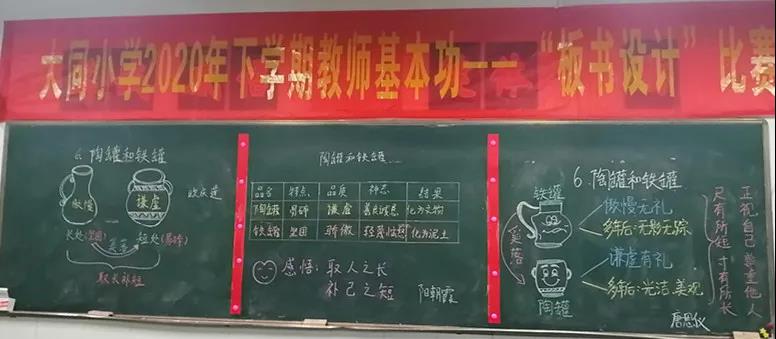 大同小学2020年下学期教师基本功——“板书设计”比赛
6.陶罐和铁罐
傲慢
谦虚
长处(坚固)
奚落
短处(易碎)
取长补短
陶罐和铁罐
品名 特点 品质 神态 结果
陶罐 易碎 谦虚 化为文物
铁罐 坚固 骄傲 化为泥土
感悟:取人之长
补己之短
阳朝霞
6.陶罐和铁罐
铁罐
傲慢无礼
多年后:无影无踪
奚落
谦虚有礼
多年后:光洁、美观
陶罐
正视自己 尊重他人
尺有所短 寸有所长